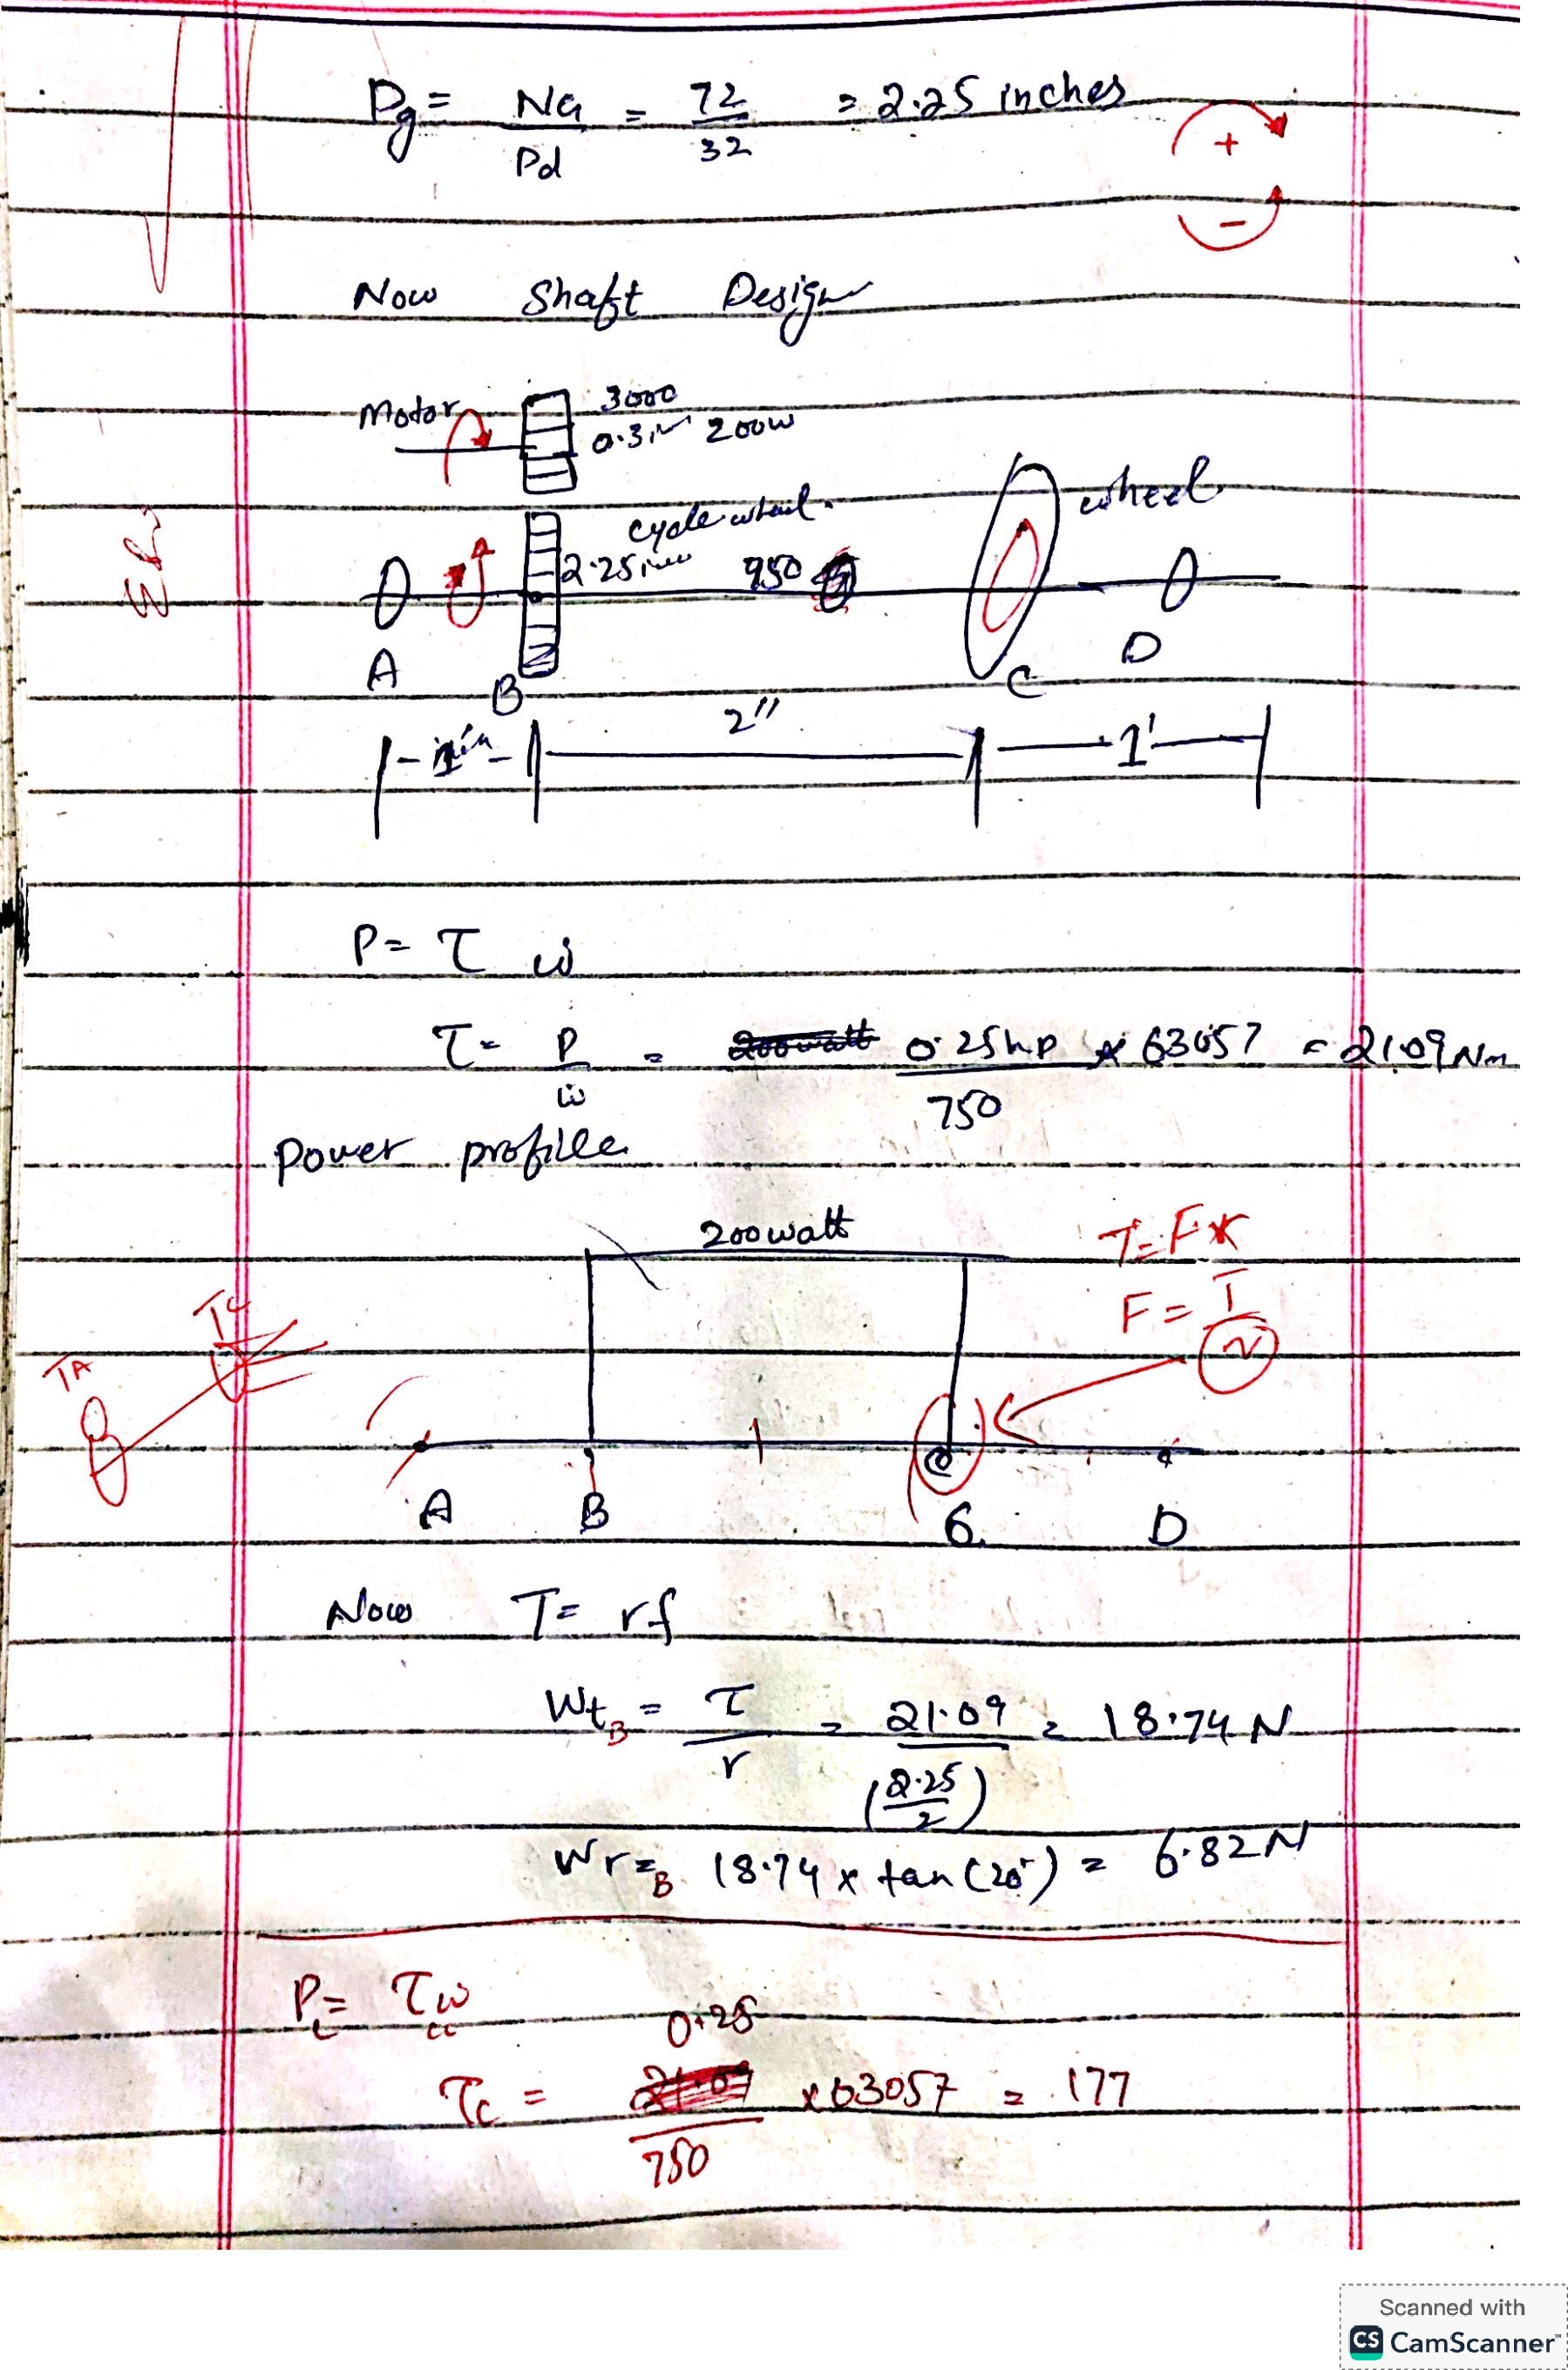 Dg = NG/Pd = 72/32 = 2.25 inches
+
-
Now Shaft Design
Motor 3000
0.3in 200w
cycle wheel. wheel
2.25in 950
A B C D
1in 2" 1'
P = τ ω
τ = P/ω = 0.25hp/750 × 63057 = 21.09 Nm
Power profile
200watt
T = F×r
F = T/r
TA TC
A B C D
Now T = rf
WtB = τ/r = 21.09/(2.25/2) = 18.74 N
WrB = 18.74 × tan(20°) = 6.82N
Pc = τc ωc
τc = 0.25/750 × 63057 = 177
Scanned with
CS CamScanner™